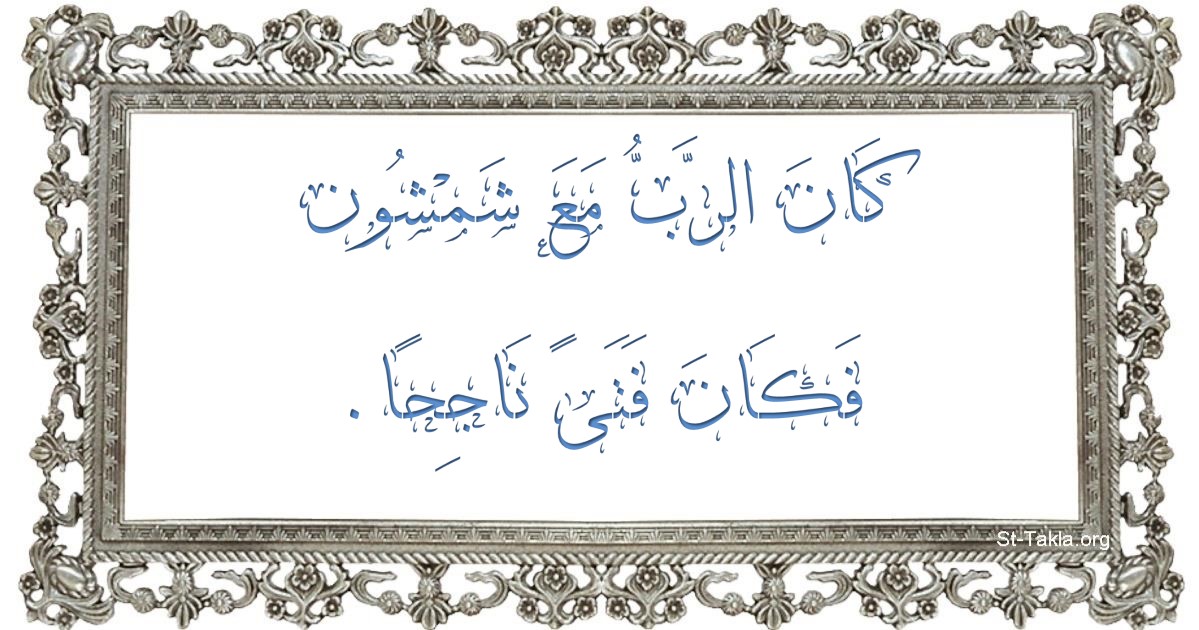 كَانَ الرَّبُّ مَعَ شَمْشُون
فَكَانَ فَتَىً نَاجِحًا .
St-Takla.org